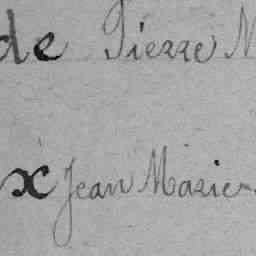 de Pierre N
x Jean Marie